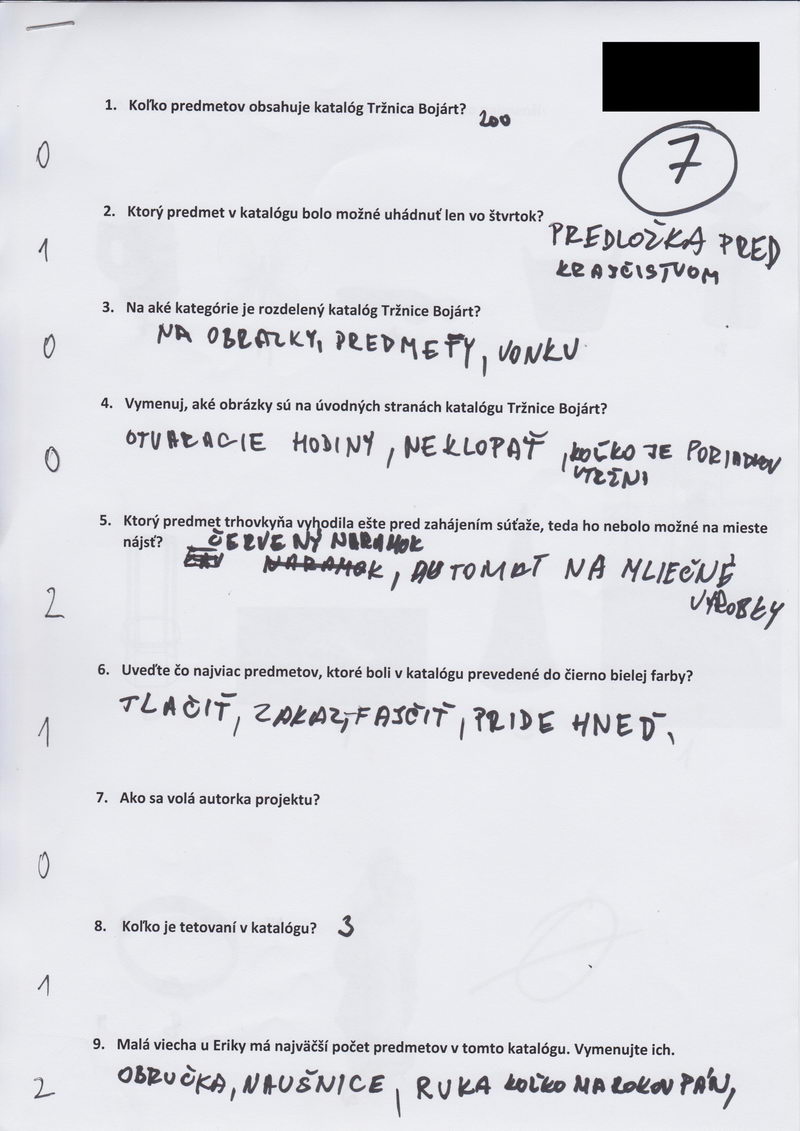 1. Koľko predmetov obsahuje katalóg Tržnica Bojárt? 200
0
7
2. Ktorý predmet v katalógu bolo možné uhádnuť len vo štvrtok?
PREDLOŽKA PRED
1
KRAJČISTVOM
3. Na aké kategórie je rozdelený katalóg Tržnice Bojárt?
NA OBRAZKY, PREDMETY, VONKU
0
4. Vymenuj, aké obrázky sú na úvodných stranách katalógu Tržnice Bojárt?
OTVARACIE HODINY, NEKLOPAŤ, KOĽKO JE PORIADKOV
V TRŽNI
0
5. Ktorý predmet trhovkyňa vyhodila ešte pred zahájením súťaže, teda ho nebolo možné na mieste
nájsť? ČERVENÝ NARAMOK
NARAMOK, AUTOMAT NA MLIEČNÉ
VÝROBKY
2
6. Uveďte čo najviac predmetov, ktoré boli v katalógu prevedené do čierno bielej farby?
TLAČIŤ, ZAKAZ, FAJČIŤ, PRIDE HNEĎ,
1
7. Ako sa volá autorka projektu?
0
8. Koľko je tetovaní v katalógu? 3
1
9. Malá viecha u Eriky má najväčší počet predmetov v tomto katalógu. Vymenujte ich.
OBRUČKA, NAUŠNICE, RUKA KOĽKO MA ROKOV PÁN,
2